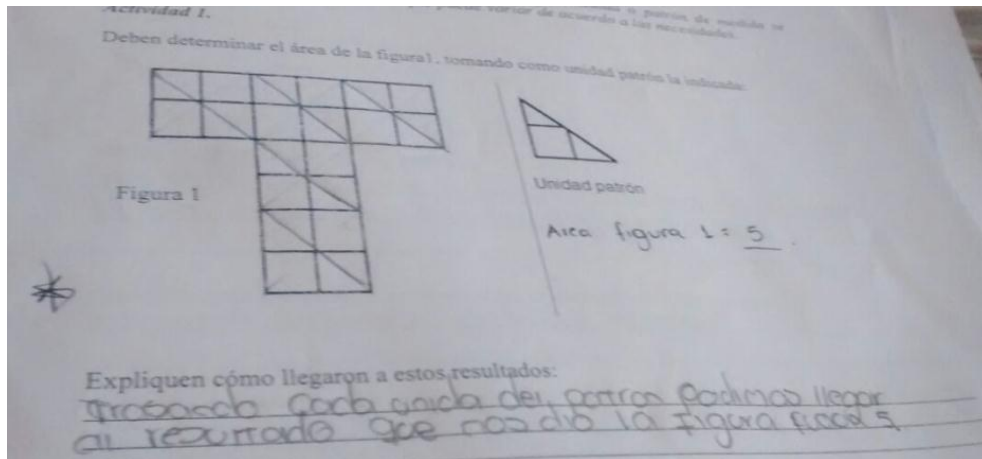 Actividad 1.
variar de acuerdo a las necesidades.
Deben determinar el área de la figura1, tomando como unidad patrón la indicada:
Figura 1
Unidad patrón
Area figura 1 = 5
Expliquen cómo llegaron a estos resultados:
del patron Podimos llegar
al resultado que nos dio la figura